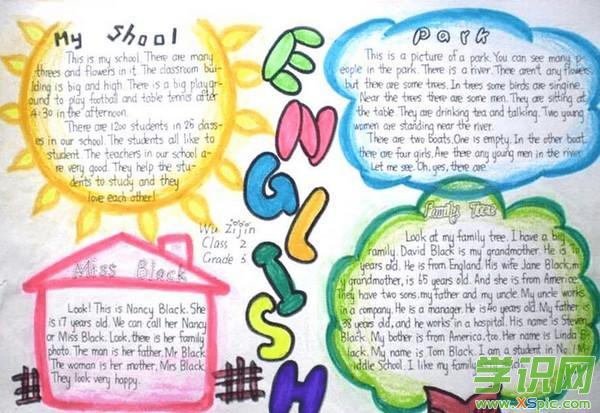 My Shool
This is my school. There are many
threes and flowers in it. The classroom bui-
lding is big and high. There is a big playgr-
ound to play football and table tennis after
4:30 in the afternoon.
There are 1200 students in 25 class-
es in our school. The students all like to
student. The teachers in our school a-
re very good. They help the stu-
dents to study and they
love each other!
ENGLISH
Park
This is a picture of a park. You can see many p-
eople in the park. There is a river. There aren't any flowers
but there are some trees. In trees some birds are singing.
Near the trees there are some men. They are sitting at
the table They are drinking tea and talking. Two young
women are standing near the river.
There are two boats. One is empty. In the other boat
there are four girls. Are there any young men in the river.
Let me see. Oh, yes, there are.
Wu Zijin
Class 2
Grade 3
Miss Black
Look! This is Nancy Black. She
is 17 years old. We can call her Nancy
or Miss Black. Look, there is her family
photo. The man is her father, Mr Black.
The woman is her mother, Mrs Black.
They look very happy.
Family Tree
Look at my family tree. I have a big
family. David Black is my grandmother. He is
years old. He is from England. His wife Jane Black, m-
y grandmother, is 65 years old. And she is from America.
They have two sons, my father and my uncle. My uncle works
in a company. He is a manager. He is 40 years old. My father is
38 years old, and he works in a hospital. His name is Steven
Black. My bother is from America, too. Her name is Linda
Black. My name is Tom Black. I am a student in No.1
Middle School. I like my family
学识网
www.XSpic.com